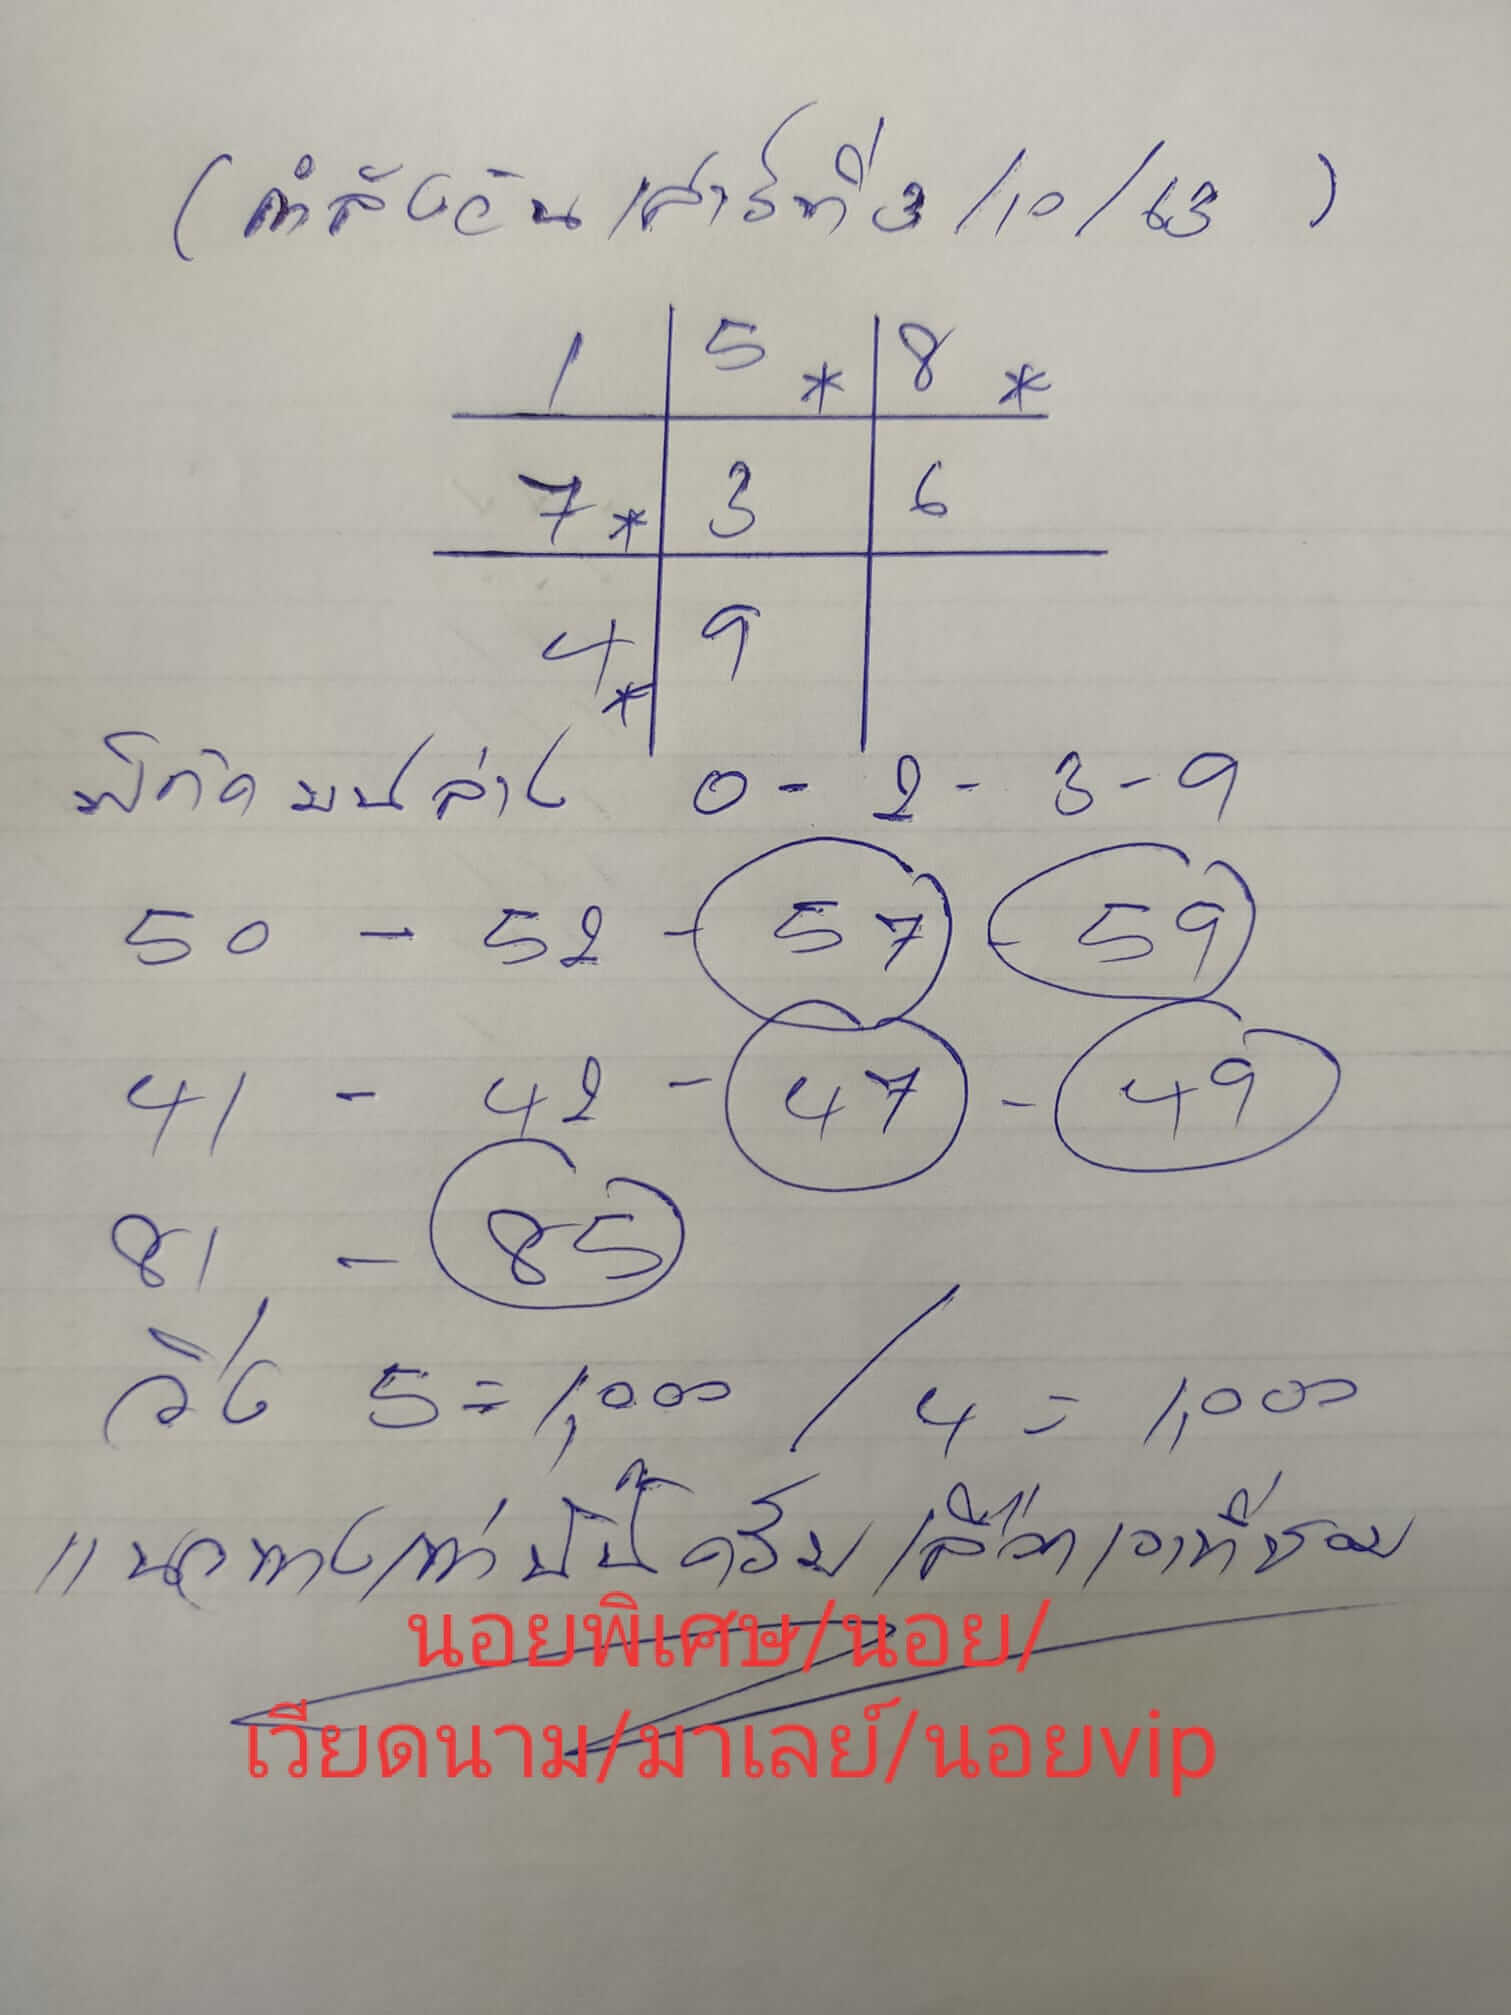 (กำลังวันเสาร์ที่ 3/10/63)
1 | 5 * | 8 *
7 * | 3 | 6
4 * | 9
พิกัดบนล่าง 0 - 2 - 3 - 9
50 - 52 - 57 - 59
41 - 42 - 47 - 49
81 - 85
วิ่ง 5 = 1,000 / 4 = 1,000
แนวทางเท่านั้นครับ เลือกเอาที่ชอบ
นอยพิเศษ/นอย/
เวียดนาม/มาเลย์/นอยvip